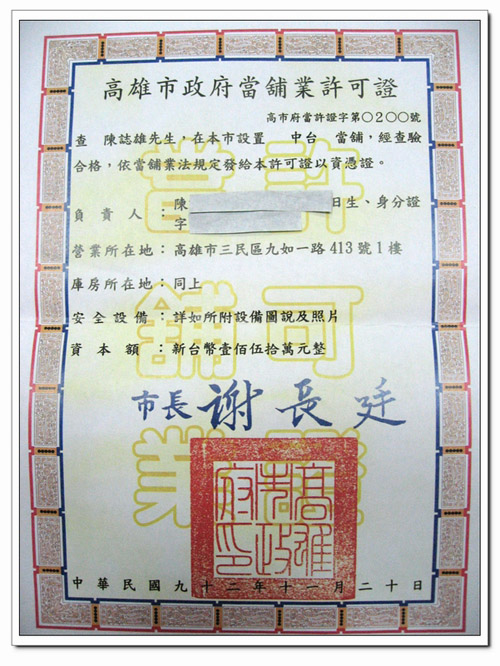 高雄市政府當舖業許可證
高市府當許證字第〇2〇〇號
查 陳誌雄先生，在本市設置 中台 當舖，經查驗
合格，依當舖業法規定發給本許可證以資憑證。
負責人：陳 日生、身分證
字
營業所在地：高雄市三民區九如一路413號1樓
庫房所在地：同上
安全設備：詳如所附設備圖說及照片
資本額：新台幣壹佰伍拾萬元整
市長 謝長廷
高雄市政府印
中華民國九十二年十一月二十日
許可證
當舖業